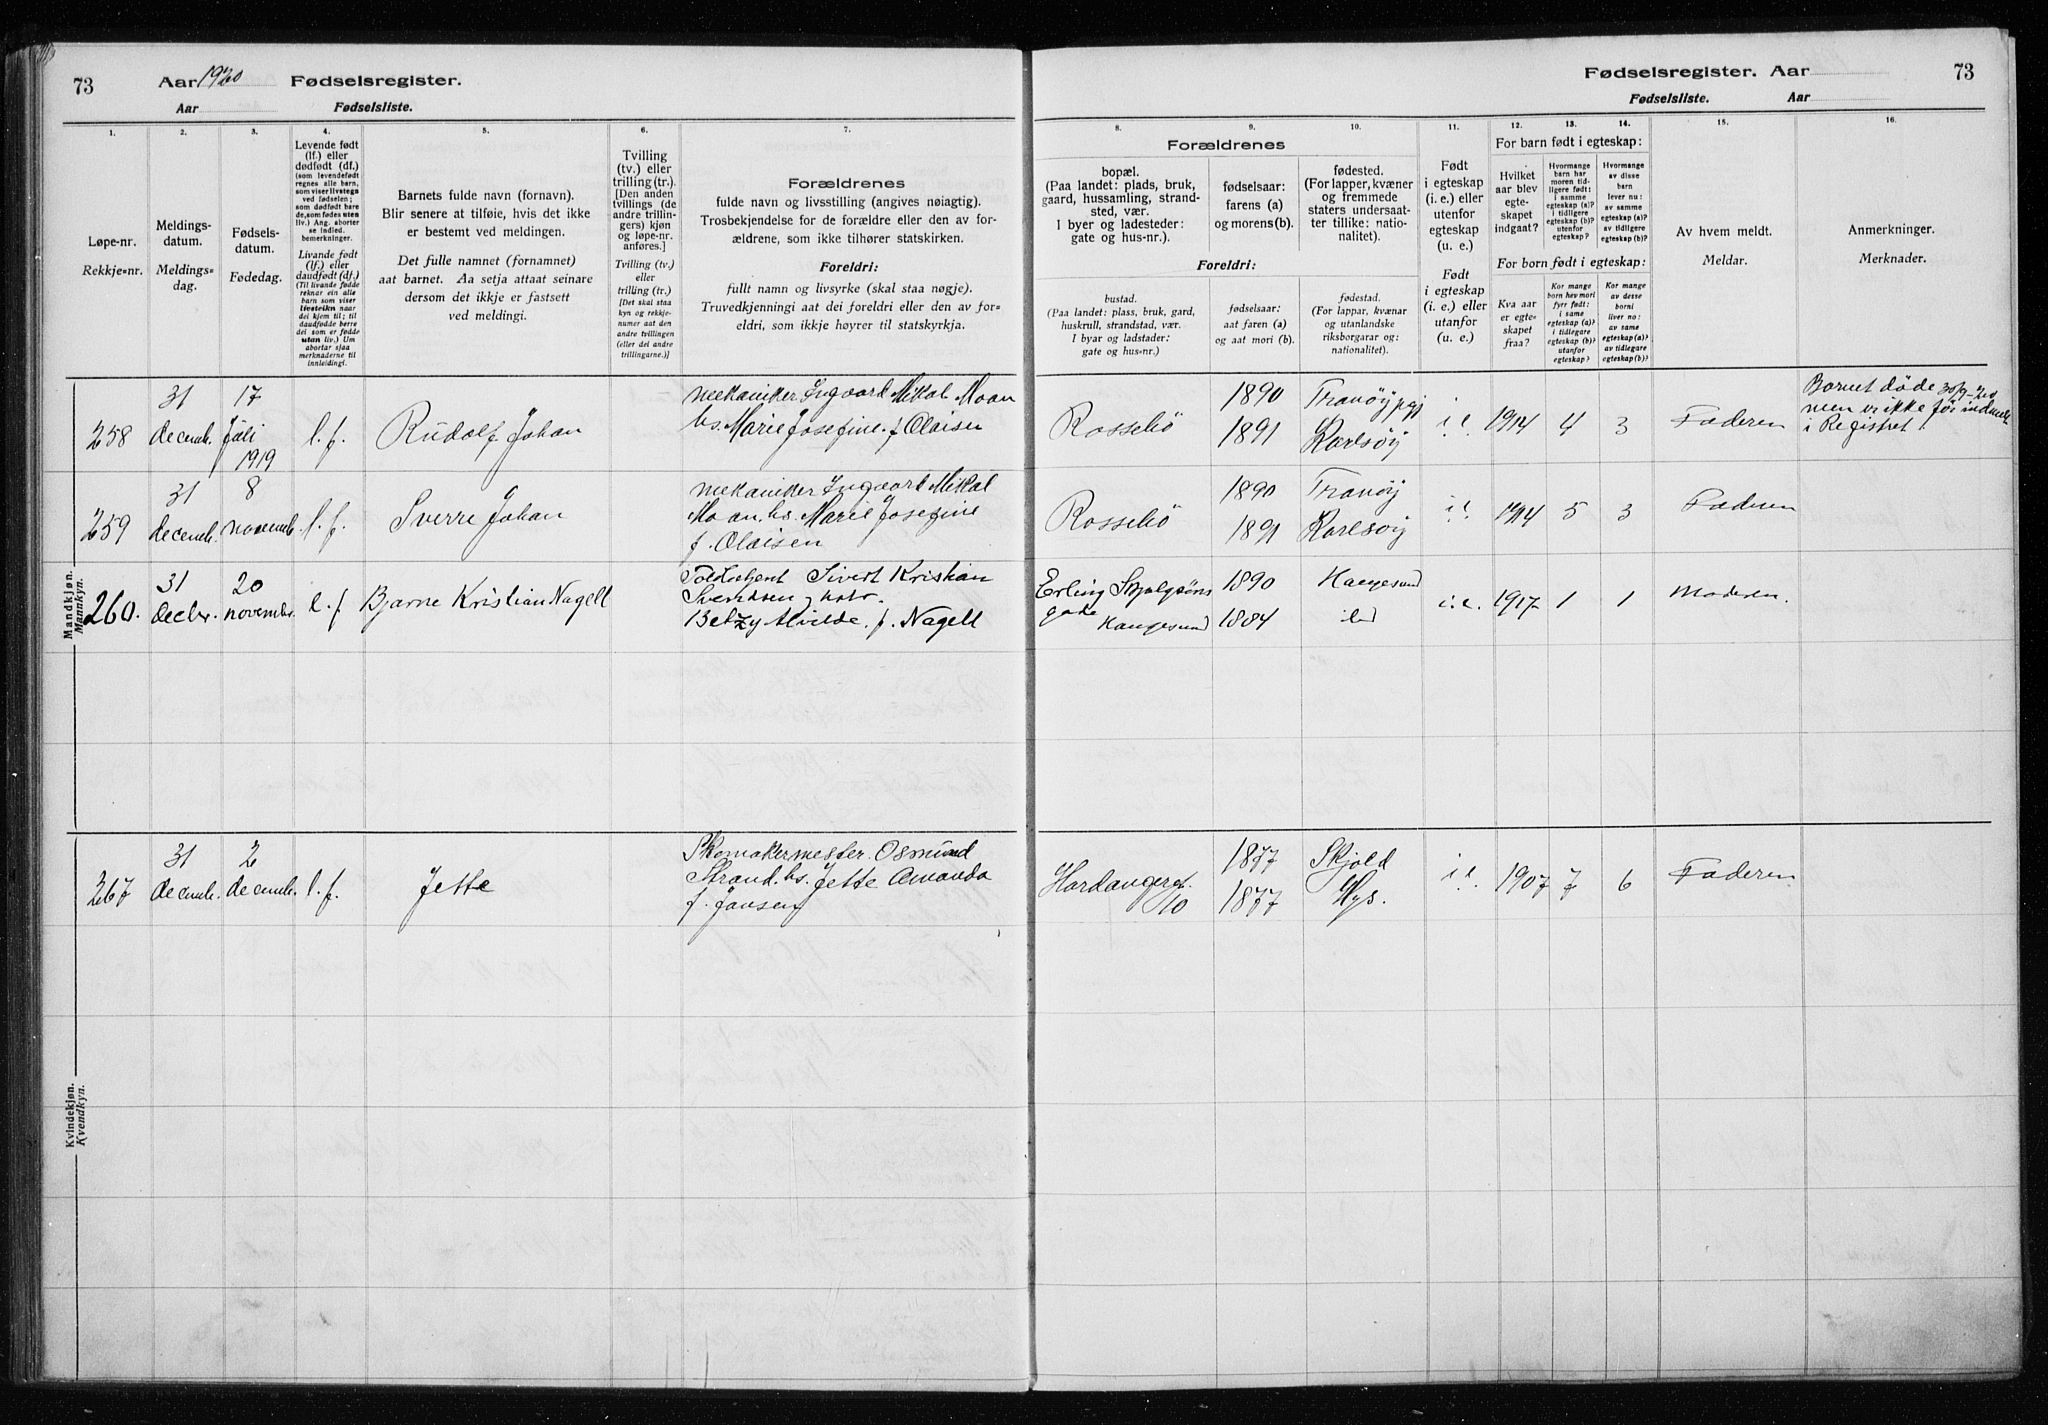 73 Aar 1920 Fødselsregister.
Aar Fødselsliste.
1.
Løpe-nr.
Rekkje=nr.
2.
Meldings-
datum.
Meldings=
dag.
3.
Fødsels-
datum.
Fødedag.
4.
Levende født
(lf.) eller
dødfødt (df.)
(som levendefødt
regnes alle barn,
som viser livstegn
ved fødselen;
som dødfødt bare
de, som fødes uten
liv.) Ang. aborter
se indled.
bemerkninger.
Livande født
(lf.) eller
daudfødt (df.)
(Til livande fødde
reknar ein alle
barn som viser
livsteikn naar
dei kjem til; til
daudfødde berre
dei som er fødde
utan liv.) Um
abortar sjaa
merknaderne til
innleidingi.
5.
Barnets fulde navn (fornavn).
Blir senere at tilføie, hvis det ikke
er bestemt ved meldingen.
Det fulle namnet (fornamnet)
aat barnet. Aa setja attaat seinare
dersom det ikkje er fastsett
ved meldingi.
6.
Tvilling
(tv.) eller
trilling (tr.)
[Den anden
tvillings (de
andre trillin-
gers) kjøn
og løpe-nr.
anføres.]
Tvilling (tv.)
eller
trilling (tr.)
[Det skal staa
kyn og rekkje-
numer aat den
andre tvillingen
(eller dei andre
trillingarne.)]
7.
Forældrenes
fulde navn og livsstilling (angives nøiagtig).
Trosbekjendelse for de forældre eller den av for-
ældrene, som ikke tilhører statskirken.
Foreldri:
fullt namn og livsyrke (skal staa nøgje).
Truvedkjenningi aat dei foreldri eller den av for-
eldri, som ikkje høyrer til statskyrkja.
Mandkjøn.
Mannkyn.
258
31
decemb.
17
Juli
1919
l. f.
Rudolf Johan
mekaniker Ingvard Mikal Moan
hs. Marie Josefine f. Olaisen
259
31
decemb.
8
novemb.
l. f.
Sverre Johan
mekaniker Ingvard Mikal
Moan. hs. Marie Josefine
f. Olaisen
260.
31
decbr.
20
novembr.
l. f
Bjarne Kristian Nagell
Toldbetjent Sivert Kristian
Svendsen
Betzy Alvilde. f. Nagell
Kvindekjøn.
Kvendkyn.
267
31
decemb.
2
decemb.
l. f.
Jette
Skomakermester. Osmund
Strand. hs. Jette Amanda
f. Jansen
Fødselsregister. Aar 73
Fødselsliste. Aar
8. 9. 10.
Forældrenes
bopæl.
(Paa landet: plads, bruk,
gaard, hussamling, strand-
sted, vær.
I byer og ladesteder:
gate og hus-nr.).
fødselsaar:
farens (a)
og morens (b).
fødested.
(For lapper, kvæner
og fremmede
staters undersaat-
ter tillike: natio-
nalitet).
Foreldri:
bustad.
(Paa landet: plass, bruk, gard,
huskrull, strandstad, vær.
I byar og ladstader:
gate og hus-nr.)
fødselsaar:
aat faren (a)
og aat mori (b).
fødestad.
(For lappar, kvænar
og utanlandske
riksborgarar og:
nationalitet).
11.
Født
i egteskap
(i. e.) eller
utenfor
egteskap
(u. e.)
Født
i egteskap
(i. e.) eller
utanfor
egteskap
(u. e.)
12. 13. 14.
For barn født i egteskap:
Hvilket
aar blev
egte-
skapet
indgaat?
Hvormange
barn har
moren tid-
ligere født:
i samme
egteskap (a)?
i tidligere
egteskap (b)?
utenfor
egteskap?
Hvormange
av disse
barn
lever nu:
av samme
egteskap (a)?
av tidligere
egteskap (b)?
For born født i egteskap:
Kva aar
er egte-
skapet
fraa?
Kor mange
born hev mori
fyrr født:
i same
egteskap (a)?
i tidlegare
egteskap (b)?
utanfor
egteskap?
Kor mange
av desse
borni
liver no:
av same
egteskap (a)?
av tidlegare
egteskap (b)?
15.
Av hvem meldt.
Meldar.
16.
Anmerkninger.
Merknader.
Rossebö
1890
1891
Tranöy pgj
Karlsöy
i. e.
1914
4
3
Faderen
Barnet døde 30/9-20
men er ikke før indmeldt
i Registret!
Rossebö
1890
1891
Tranöy
Karlsöy
i. e.
1914
5
3
Faderen
Erling Skjalgsöns
gade
Haugesund
1890
1884
Haugesund
i. e.
1917
1
1
Moderen.
Hardangergt.
10
1877
1877
Skjold
Hgs.
i. e.
1907
7
6
Faderen